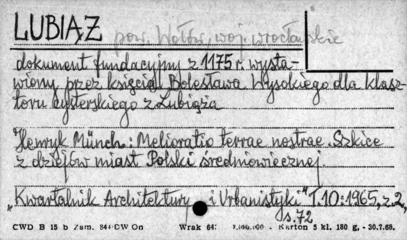 LUBIĄŻ pow. Wołów, woj. wrocławskie
dokument fundacyjny z 1175 r. wysta-
wiony przez księcia Bolesława Wysokiego dla klasz-
toru cysterskiego z Lubiąża
Henryk Münch: Melioratio terrae nostrae. Szkice
z dziejów miast Polski średniowiecznej.
„Kwartalnik Architektury i Urbanistyki" T.10:1965, z.2,
s.72
CWD B 15 b Zam. CW On Wrak 64: Karton 5 kl. 180 g, - 30.7.68.